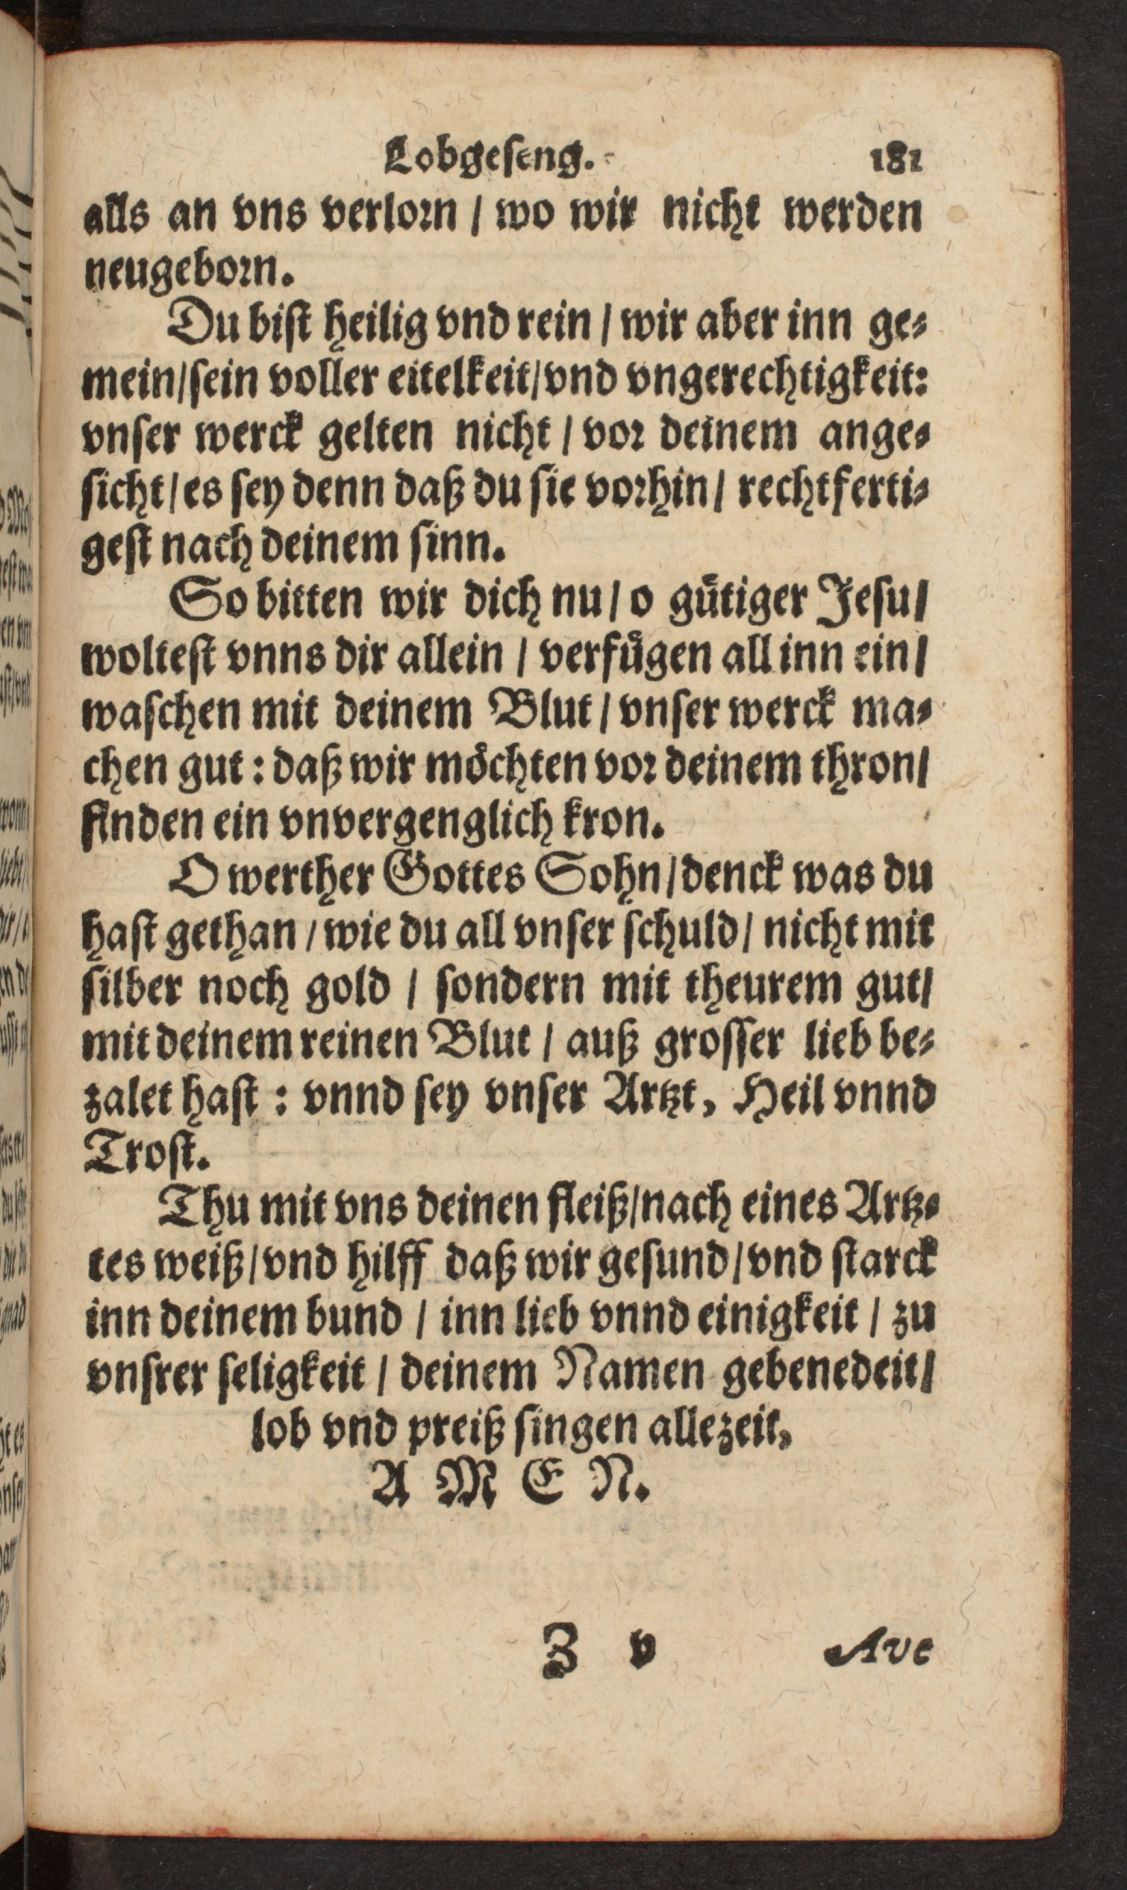 Lobgeseng. 181
alls an vns verlorn / wo wir nicht werden
neugeborn.
Du bist heilig vnd rein / wir aber inn ge-
mein/sein voller eitelkeit/vnd vngerechtigkeit:
vnser werck gelten nicht / vor deinem ange-
sicht/es sey denn daß du sie vorhin/ rechtferti-
gest nach deinem sinn.
So bitten wir dich nu/ o gütiger Jesu/
woltest vnns dir allein / verfügen all inn ein/
waschen mit deinem Blut / vnser werck ma-
chen gut: daß wir möchten vor deinem thron/
finden ein vnvergenglich kron.
O werther Gottes Sohn/denck was du
hast gethan / wie du all vnser schuld/ nicht mit
silber noch gold / sondern mit theurem gut/
mit deinem reinen Blut / auß grosser lieb be-
zalet hast: vnnd sey vnser Artzt, Heil vnnd
Trost.
Thu mit vns deinen fleiß/nach eines Artz-
tes weiß/vnd hilff daß wir gesund/vnd starck
inn deinem bund / inn lieb vnnd einigkeit / zu
vnsrer seligkeit / deinem Namen gebenedeit/
lob vnd preiß singen allezeit,
A M E N.
Z v Ave